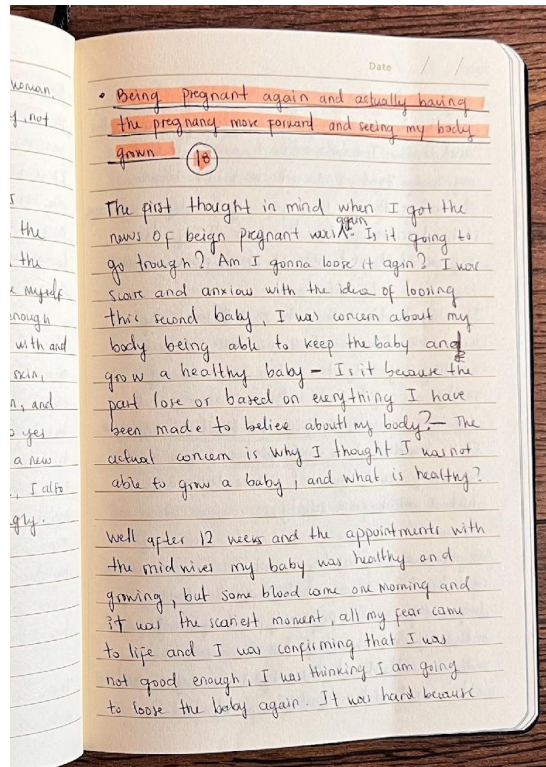 woman,
, not
the
the
myself
enough
with and
skin,
, and
yes
a new
, I also
gly.
Date / /
• Being pregnant again and actually having
the pregnancy move forward and seeing my body
grown 18
The first thought in mind when I got the
again
news of beign pregnant was : Is it going to
go trough? Am I gonna loose it agin? I was
scare and anxious with the idea of loosing
this second baby, I was concern about my
body being able to keep the baby and
grow a healthy baby - Is it because the
past lose or based on everything I have
been made to believe about my body? - The
actual concern is why I thought I was not
able to grow a baby, and what is healthy?
Well after 12 weeks and the appointments with
the midwives my baby was healthy and
growing, but some blood came one morning and
it was the scariest moment, all my fear came
to life and I was confirming that I was
not good enough, I was thinking I am going
to loose the baby again. It was hard because